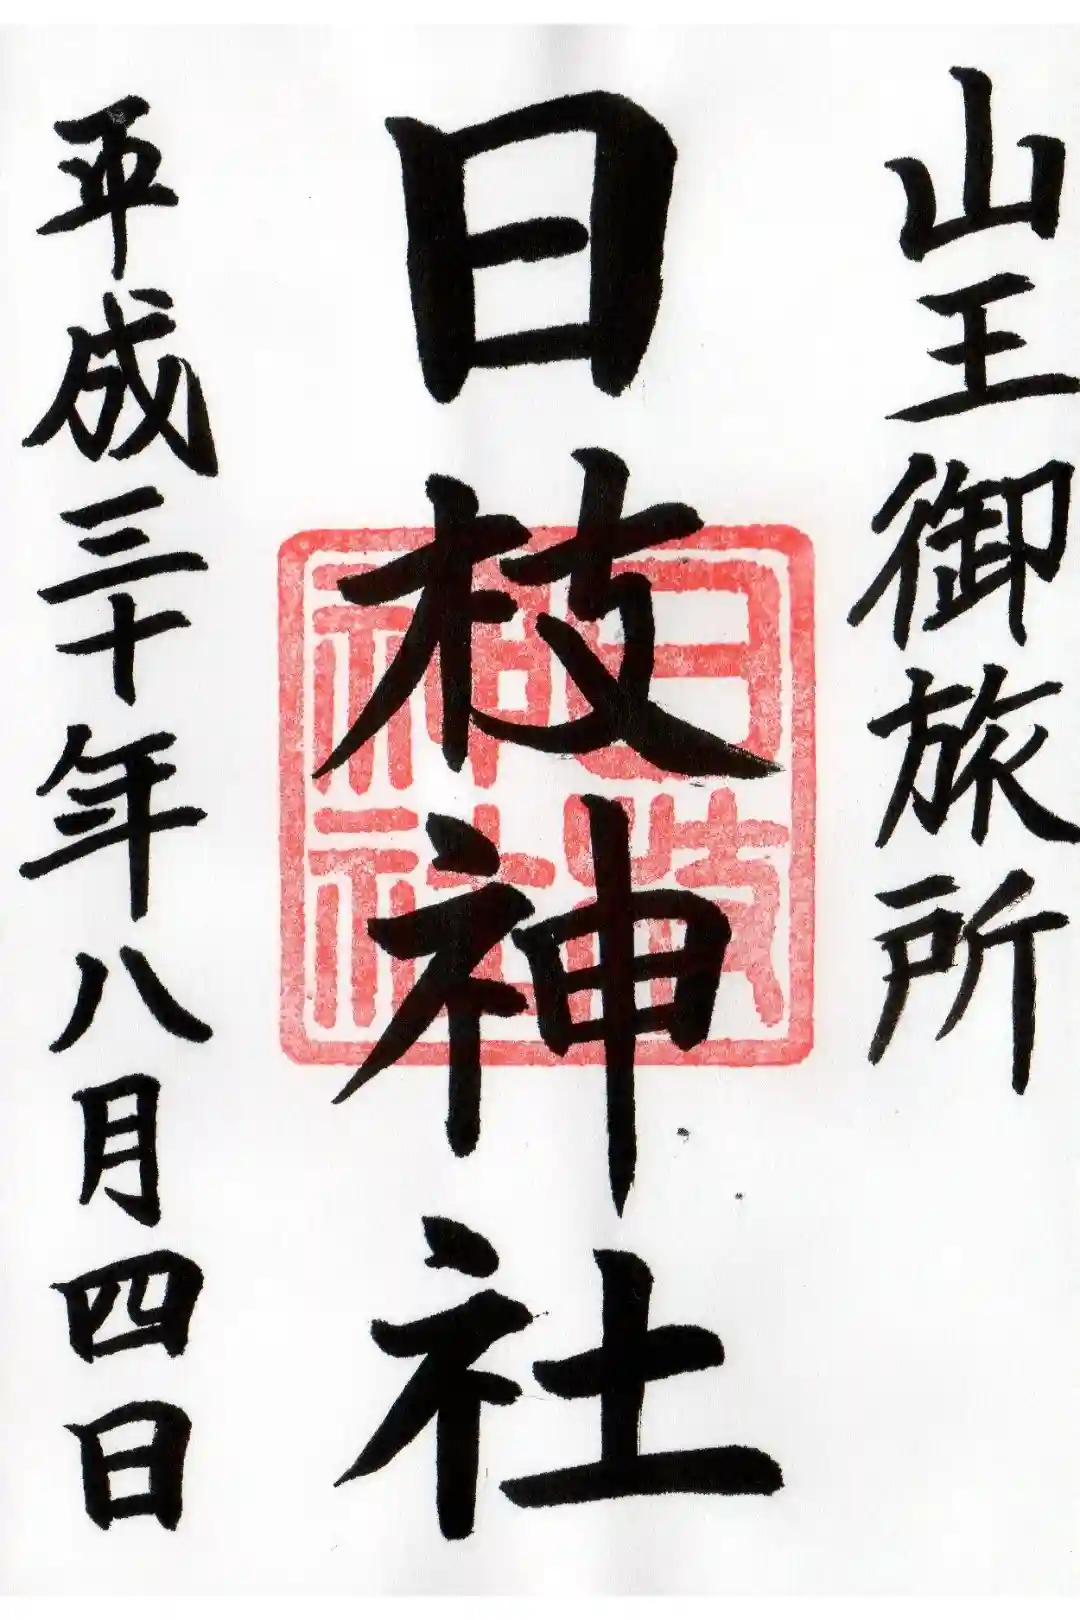 山王御旅所
日枝神社
日枝
神社
平成三十年八月四日